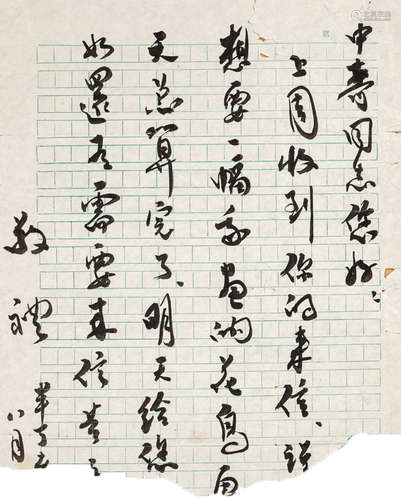 中寿同志您好:
上周收到你的来信、说
想要一幅我画的花鸟、
天总算完了、明天给您
如还有需要来信告之
敬
礼
八月